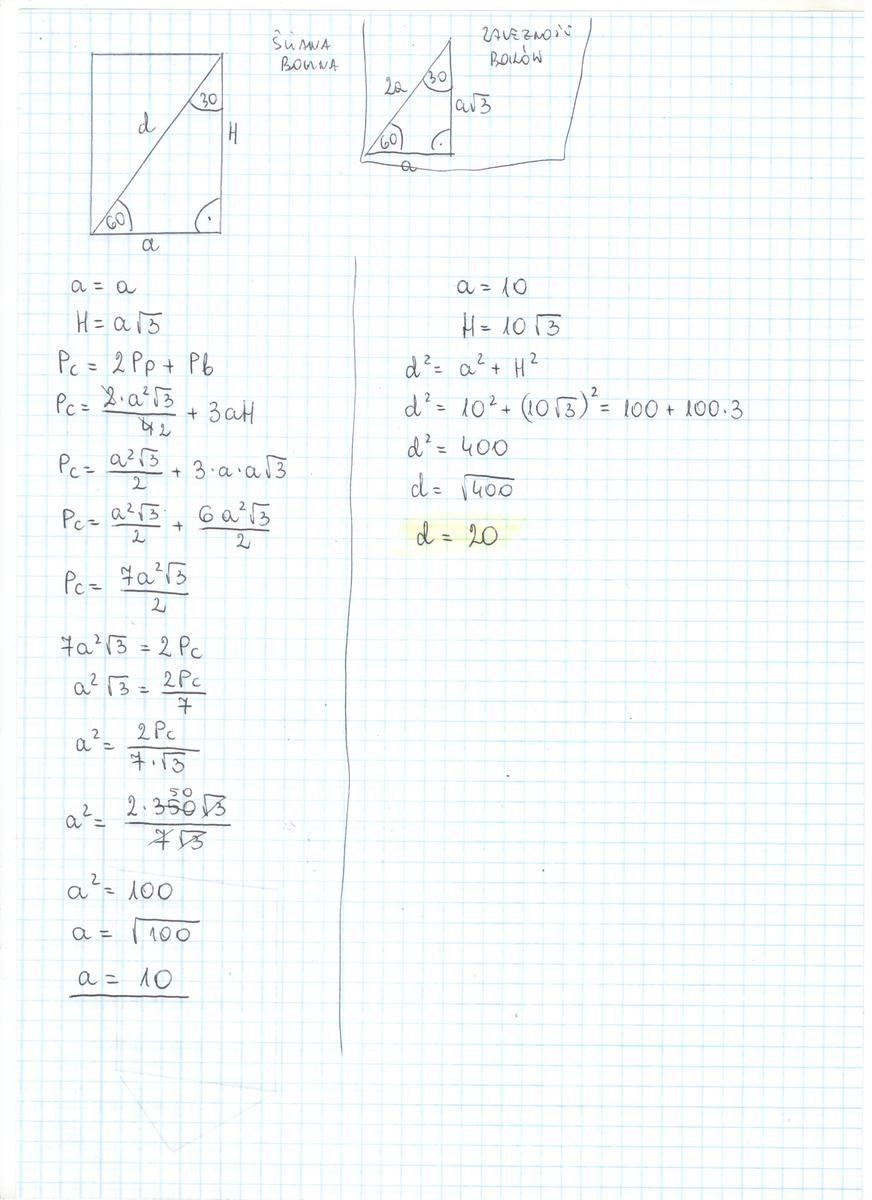 ŚCIANA
BOCZNA
ZALEŻNOŚĆ
BOKÓW
d
30
H
60
a
2a
30
a√3
60
a
a = a
H = a√3
Pc = 2Pp + Pb
Pc = 2·a²√3/4 2 + 3aH
Pc = a²√3/2 + 3·a·a√3
Pc = a²√3/2 + 6a²√3/2
Pc = 7a²√3/2
7a²√3 = 2Pc
a²√3 = 2Pc/7
a² = 2Pc/7·√3
50
a² = 2·350√3/7√3
a² = 100
a = √100
a = 10
a = 10
H = 10√3
d² = a² + H²
d² = 10² + (10√3)² = 100 + 100·3
d² = 400
d = √400
d = 20